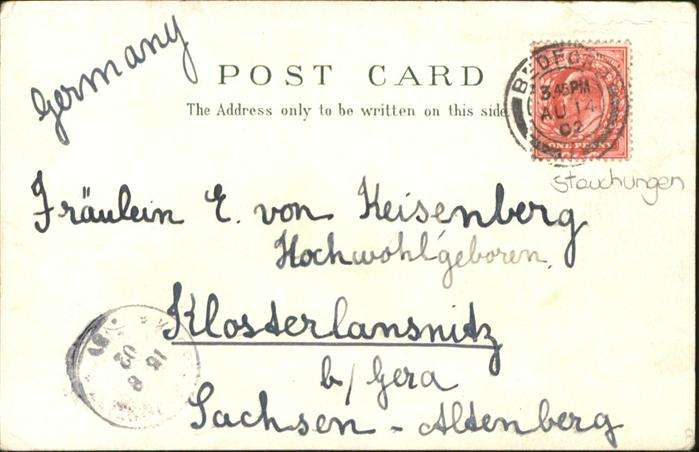 Germany
POST CARD
The Address only to be written on this side
BEDEG
3.45PM
AU 14
02
ONE PENNY
Stauchungen
Fräulein E. von Keisenberg
Hochwohlgeboren.
Klosterlansnitz
b/ Gera
Sachsen - Altenberg